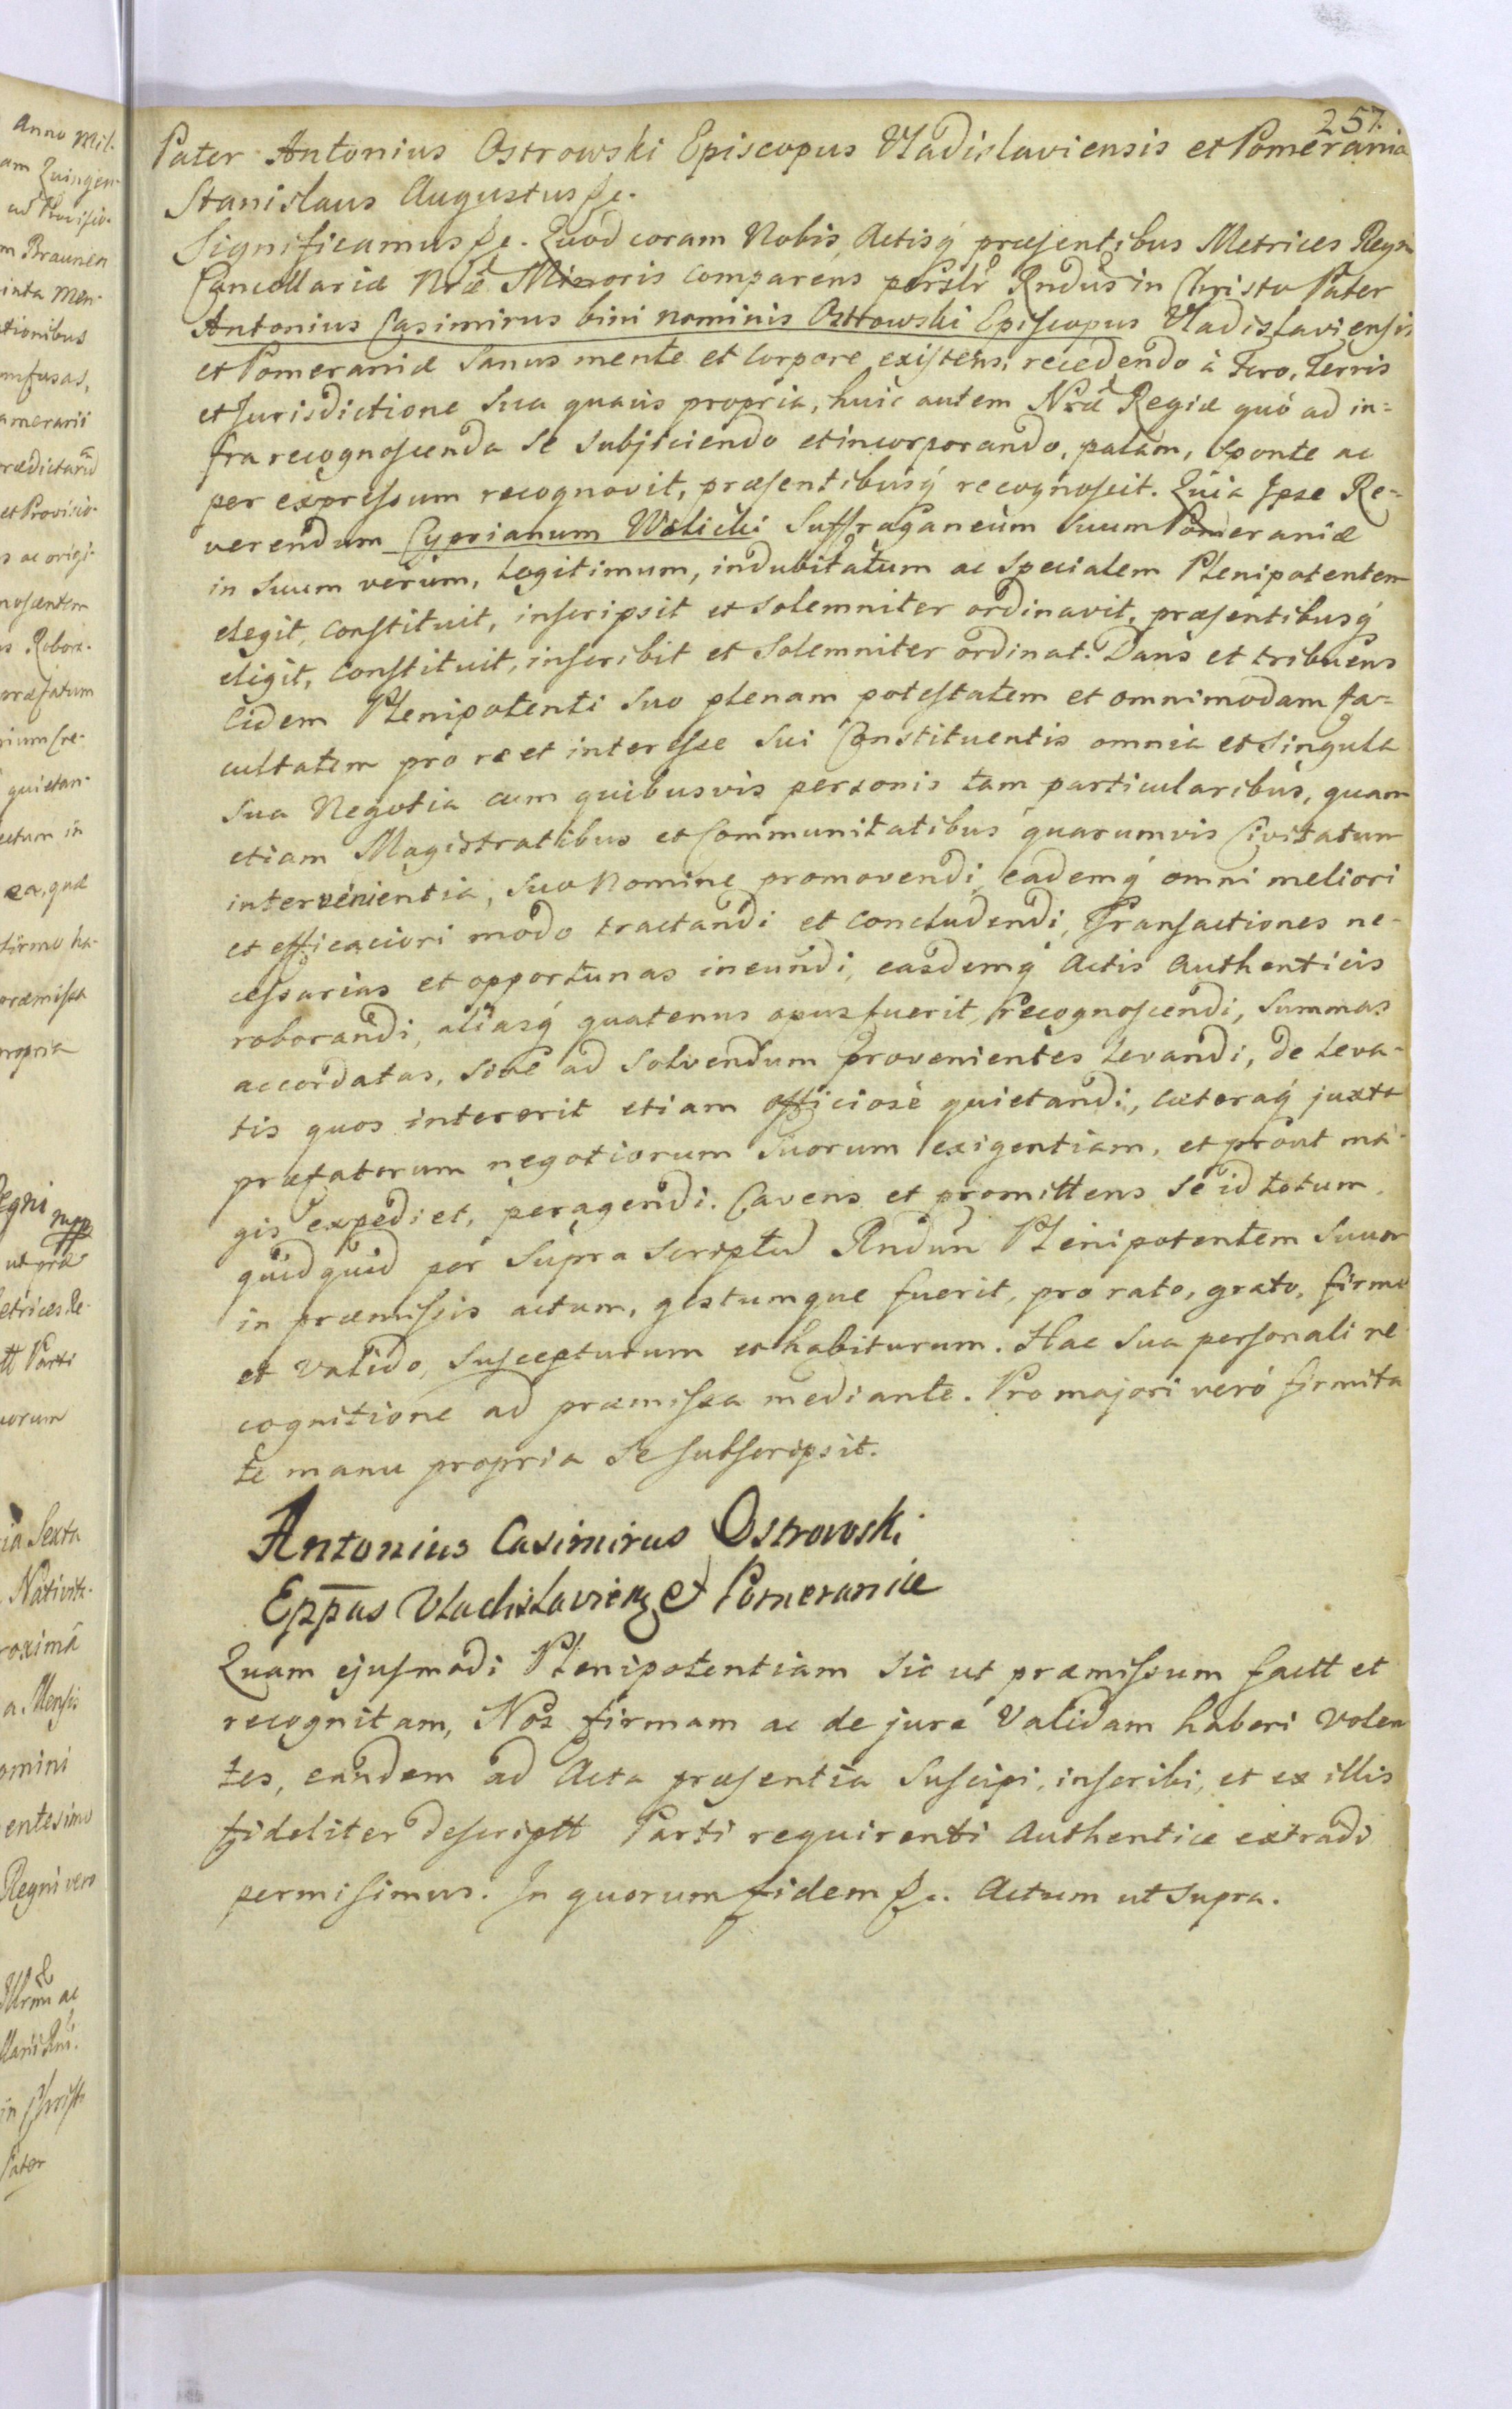 257.
Pater Antonius Ostrowski Episcopus Vladislaviensis et Pomerania
Stanislaus Augustus &c.
Significamus &c. Quod coram Nobis Actisq́ præsentibus Metrices Regni
Cancellariæ Nræ Minoris comparens persłr Rndus in Christo Pater
Antonius Casimirus bini nominis Ostrowski Episcopus Vladislaviensis
et Pomeraniæ sanus mente et corpore existens, recedendo à Foro, Terris
et Jurisdictione sua quavis propria, huic autem Nræ Regiæ quó ad in=
fra recognoscenda se subjiciendo et incorporando, palám, sponte ac
per expressum recognovit, præsentibusq́ recognoscit. Quia Ipse Re=
verendum Cyprianum Wolicki Suffraganeum suum Pomeraniæ
in suum verum, legitimum, indubitatum ac specialem Plenipotentem
elegit, constituit, inscripsit et solemniter ordinavit, præsentibusq́
eligit, constituit, inscribit et solemniter ordinat. Dans et tribuens
eidem Plenipotenti suo plenam potestatem et omnimodam fa=
cultatem pro re et interesse sui Constituentis omnia et singula
sua Negotia cum quibusvis personis tam particularibus, quam
etiam Magistratibus et Communitatibus quarumvis Civitatum
intervenientia, suo Nomine promovendi, eademq́ omni meliori
et efficaciori modo tractandi et concludendi, Transactiones ne-
cessarias et opportunas ineundi, easdemq́ Actis Authenticis
roborandi, aliasq́ quatenus opus fuerit, recognoscendi, summas
accordatas, sive ad solvendum provenientes levandi, de leva-
tis quos intererit etiam officiosè quietandi, cæteraq́ juxta
præfatorum negotiorum suorum exigentiam, et prout ma-
gis expediet, peragendi. Cavens et promittens se id totum
quidquid per supra scriptũ Rndũn Plenipotentem suum
in præmissis actum, gestumque fuerit, pro rato, grato, firmo
et valido, suscepturum et habiturum. Hac sua personali re
cognitione ad præmissa mediante. Pro majori veró firmita
te manu propria se subscripsit.
Antonius Casimirus Ostrowski
Eppus Vladislavien et Pomeraniæ
Quam ejusmodi Plenipotentiam sic ut præmissum factt et
recognitam, Nos firmam ac de jure validam haberi volen
tes, eandem ad Acta præsentia suscipi, inscribi, et ex illis
fideliter descriptt Parti requirenti Authentice extradi
permisimus. In quorum fidem &c. Actum ut supra.